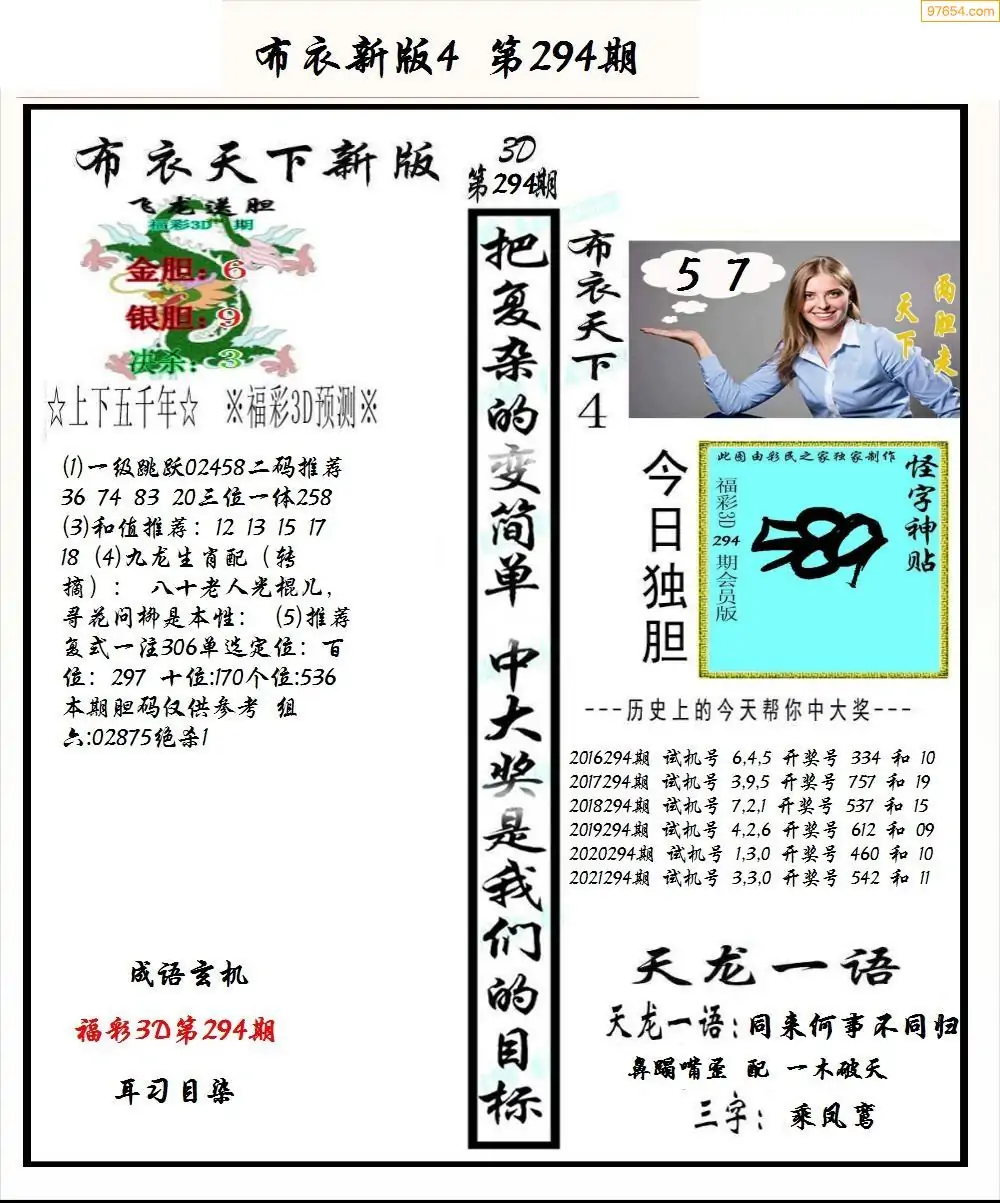 97654.com
布衣新版4 第294期
布衣天下新版
飞龙送胆
福彩3D 期
金胆：6
银胆：9
决杀：3
☆上下五千年☆ ※福彩3D预测※
(1)一级跳跃02458二码推荐
36 74 83 20三位一体258
(3)和值推荐：12 13 15 17
18 (4)九龙生肖配（转
摘）： 八十老人光棍儿,
寻花问柳是本性： (5)推荐
复式一注306单选定位：百
位：297 十位:170个位:536
本期胆码仅供参考 组
六:02875绝杀1
成语玄机
福彩3D第294期
耳习目染
3D
第294期
把复杂的变简单 中大奖是我们的目标
布衣天下4
5 7
两胆走
天下
今日独胆
此图由彩民之家独家制作
怪字神贴
福彩3D 294 期会员版
589
---历史上的今天帮你中大奖---
2016294期 试机号 6,4,5 开奖号 334 和 10
2017294期 试机号 3,9,5 开奖号 757 和 19
2018294期 试机号 7,2,1 开奖号 537 和 15
2019294期 试机号 4,2,6 开奖号 612 和 09
2020294期 试机号 1,3,0 开奖号 460 和 10
2021294期 试机号 3,3,0 开奖号 542 和 11
天龙一语
天龙一语:同来何事不同归
鼻蹋嘴歪 配 一木破天
三字： 乘凤鸾